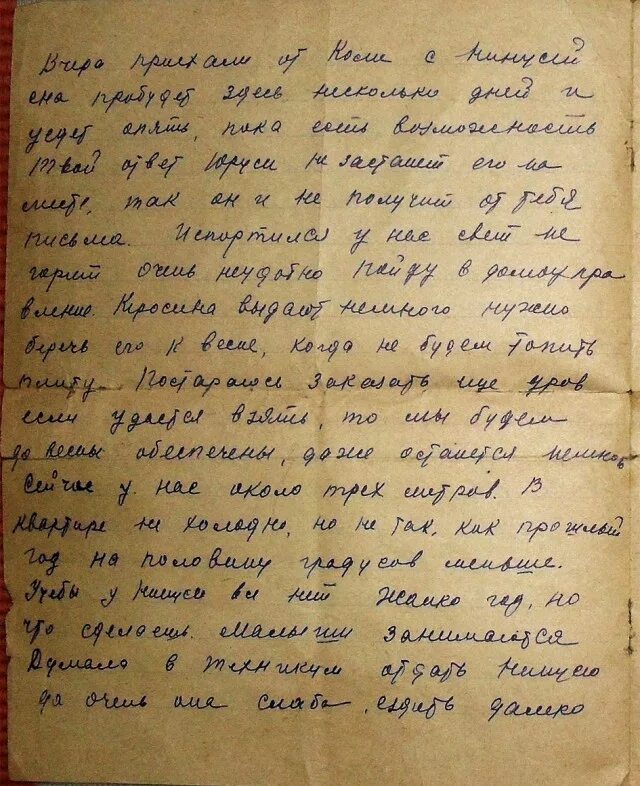 Вчера приехали от Коли с Нинусей
она пробудет здесь несколько дней и
уедет опять, пока есть возможность
Твой ответ Юруси не застанет его на
месте, так он и не получит от тебя
письма. Испортился у нас свет не
горит очень неудобно Пойду в домоупра
вление. Кросина выдают немного нужно
беречь его к весне, когда не будем топить
плиту. Постараюсь заказать еще дров
если удастся взять, то мы будем
до весны обеспечены, даже останется немного
Сейчас у нас около трех метров. В
квартире не холодно, но не так, как прошлый
год на половину градусов меньше.
Учебы у Нинуси все нет Жалко год, но
что сделаешь. Малыши занимаются
Думала в техникум отдать Нинусю
да очень она слаба, ездить далеко